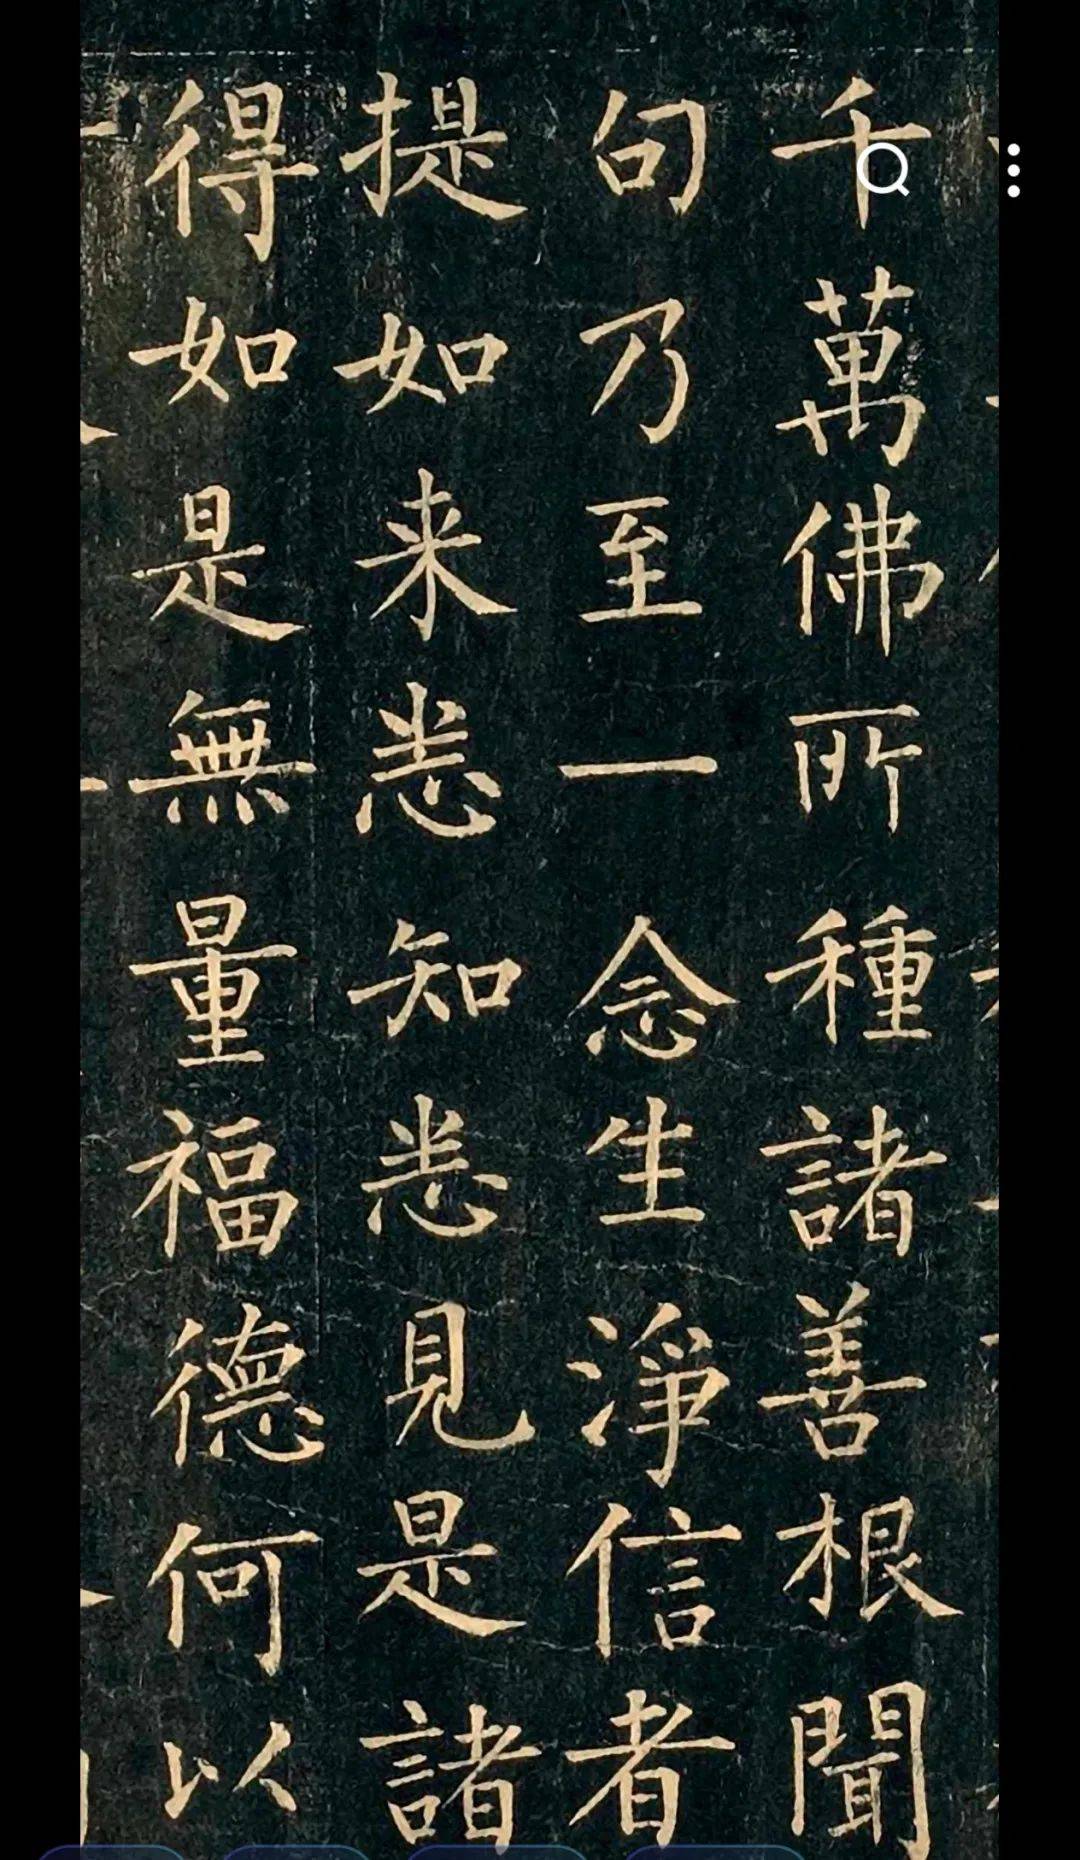 千萬佛所種諸善根聞
句乃至一念生淨信者
提如来悉知悉見是諸
得如是無量福德何以